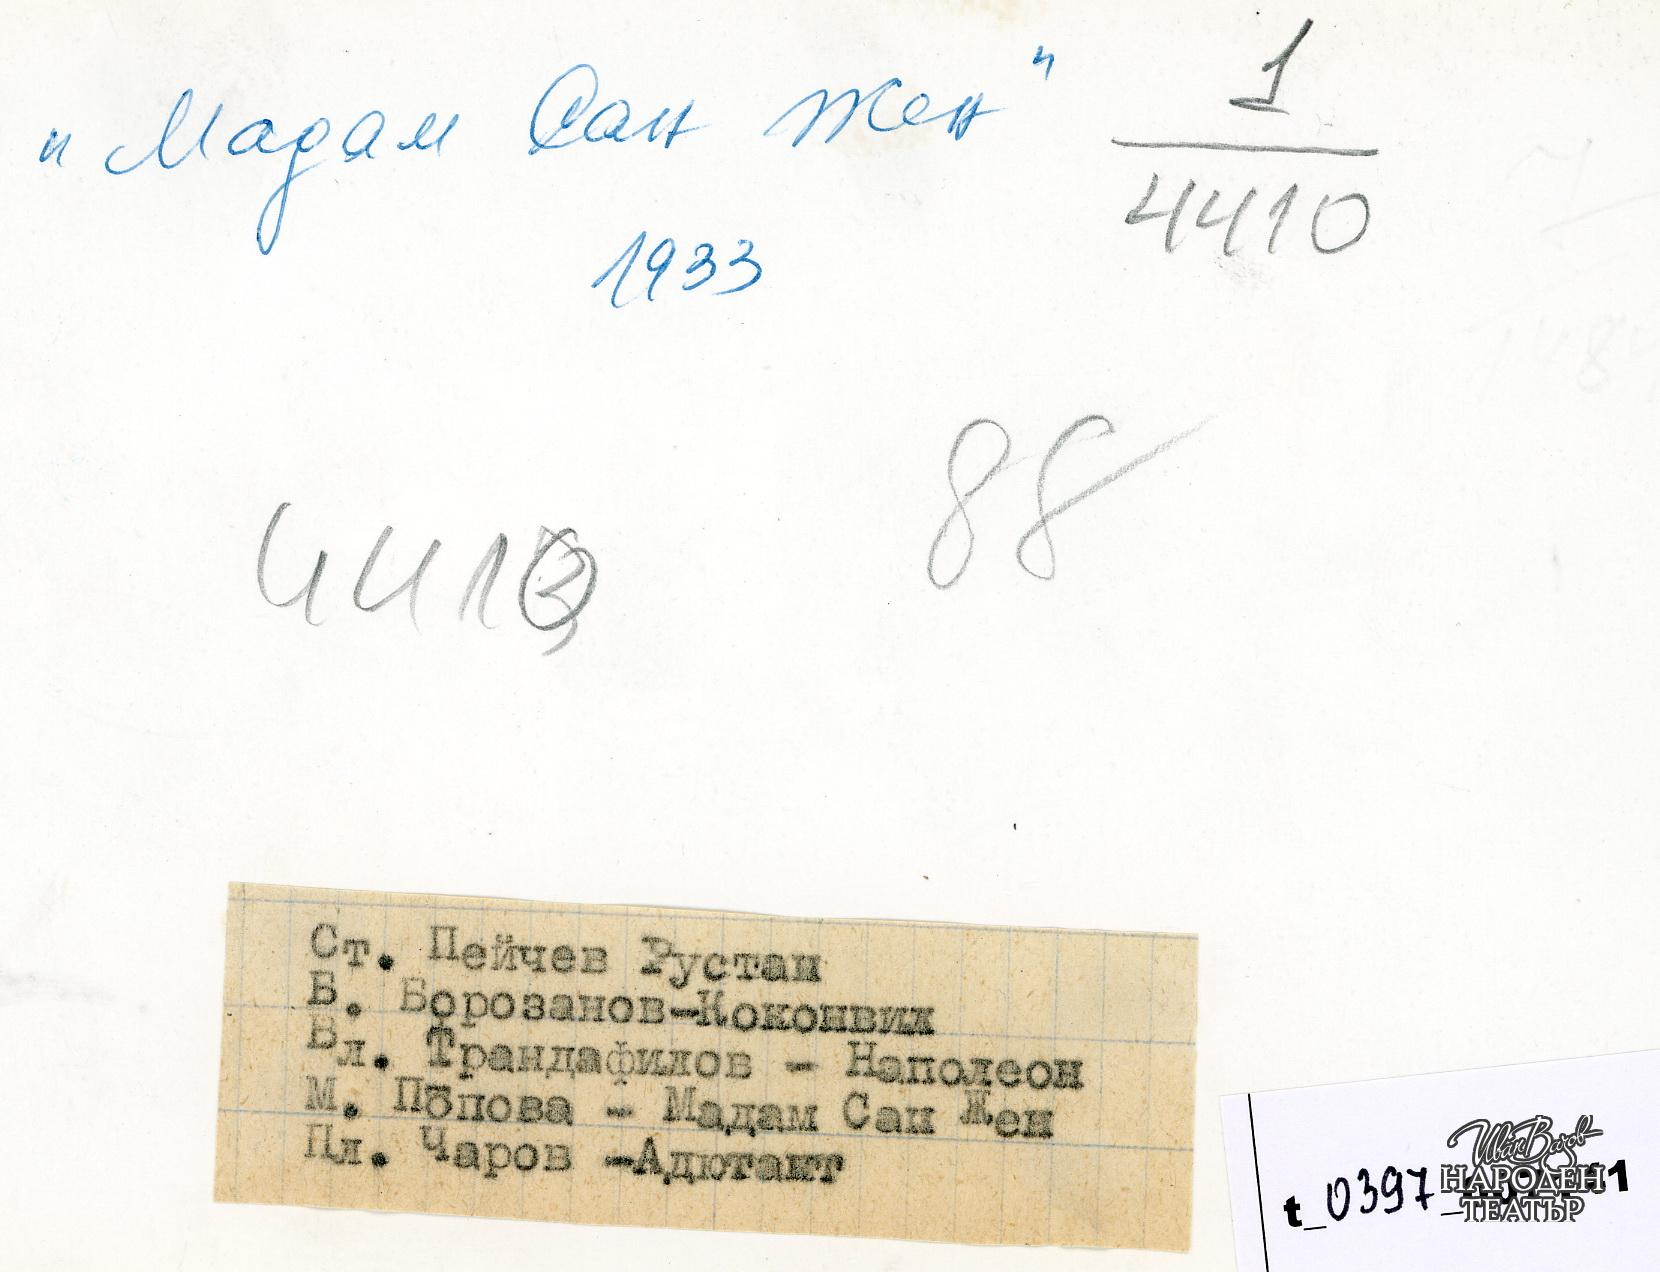 „Мадам Сан Жен"
1
4410
1933
88
441
Ст. Пейчев Рустан
Б. Борозанов-Коконвил
Вл. Трандафилов - Наполеон
М. Попова - Мадам Сан Жен
Пл. Чаров -Адютант
Иван Вазов
НАРОДЕН
ТЕАТЪР
t_0397_
1